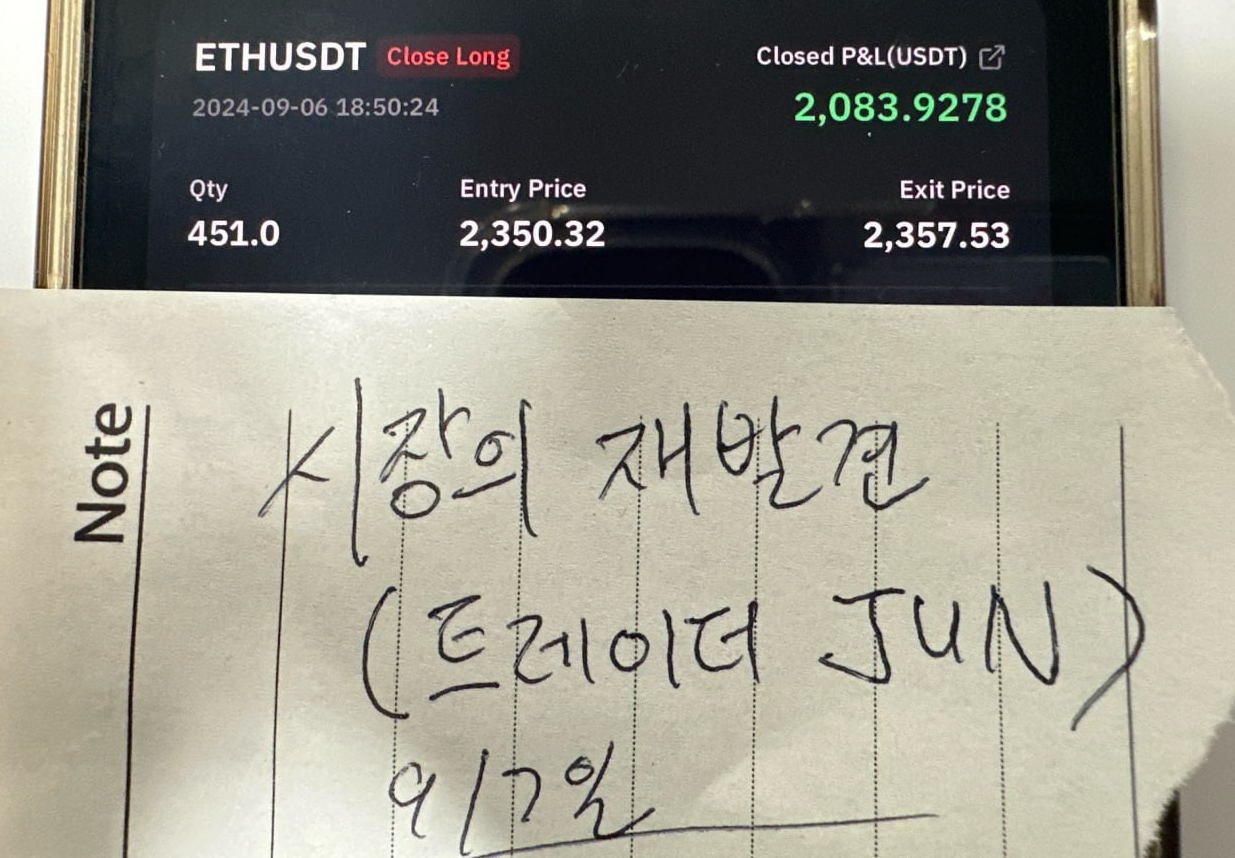 ETHUSDT Close Long Closed P&L(USDT)
2024-09-06 18:50:24 2,083.9278
Qty Entry Price Exit Price
451.0 2,350.32 2,357.53
Note
시장의 재발견
(트레이더 JUN)
9/7일